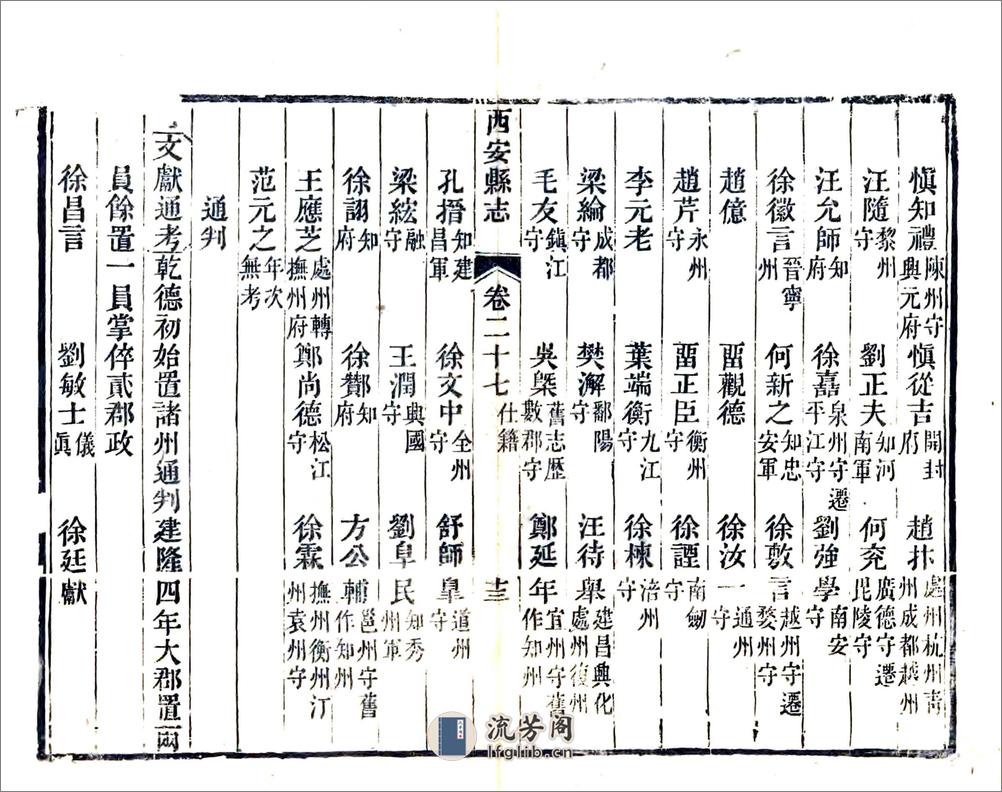 愼知禮陳州守興元府　愼從吉開封府　趙抃處州杭州靑州成都越州
汪隨黎州守　劉正夫知河南軍　何兖廣德守遷毘陵守
汪允師知府　徐嘉泉州守遷平江守　劉強學南安守
徐徽言晉寧州　何新之知忠安軍　徐敷言越州守遷婺州守
趙億　畱觀德　徐汝一通州守
趙芹永州守　畱正臣衡州守　徐謹南劒守
李元老　葉端衡九江守　徐楝涪州守
梁綸成都守　樊澥鄱陽守　汪待舉建昌興化處州復州
毛友鎭江守　吳㮣舊志歷數郡守　鄭延年宜州守舊作知州
西安縣志　卷二十七　仕籍　十三
孔搢知建昌軍　徐文中全州守　舒師皐道州守
梁絃融守　王潤興國守　劉阜民知秀州軍
徐詡知府　徐鄼知府　方公輔邕州守舊作知州
王應芝處州轉撫州府　鄭尚德松江守　徐霖撫州衡州汀州袁州守
范元之年次無考
通判
文獻通考乾德初始置諸州通判建隆四年大郡置二兩
員餘置一員掌倅貳郡政
徐昌言　劉敏士儀眞　徐廷獻
流芳阁
lfglib.cn